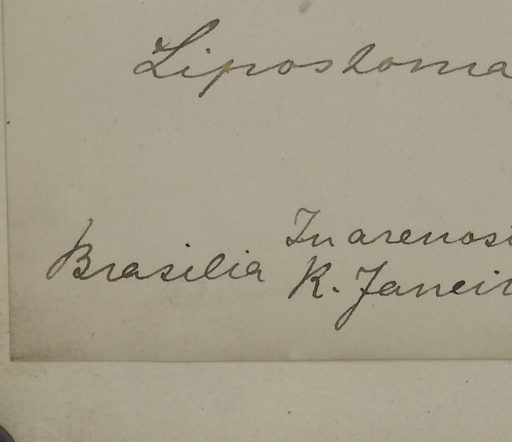 Lipostoma
In arenosi
Brasilia R. Janeir